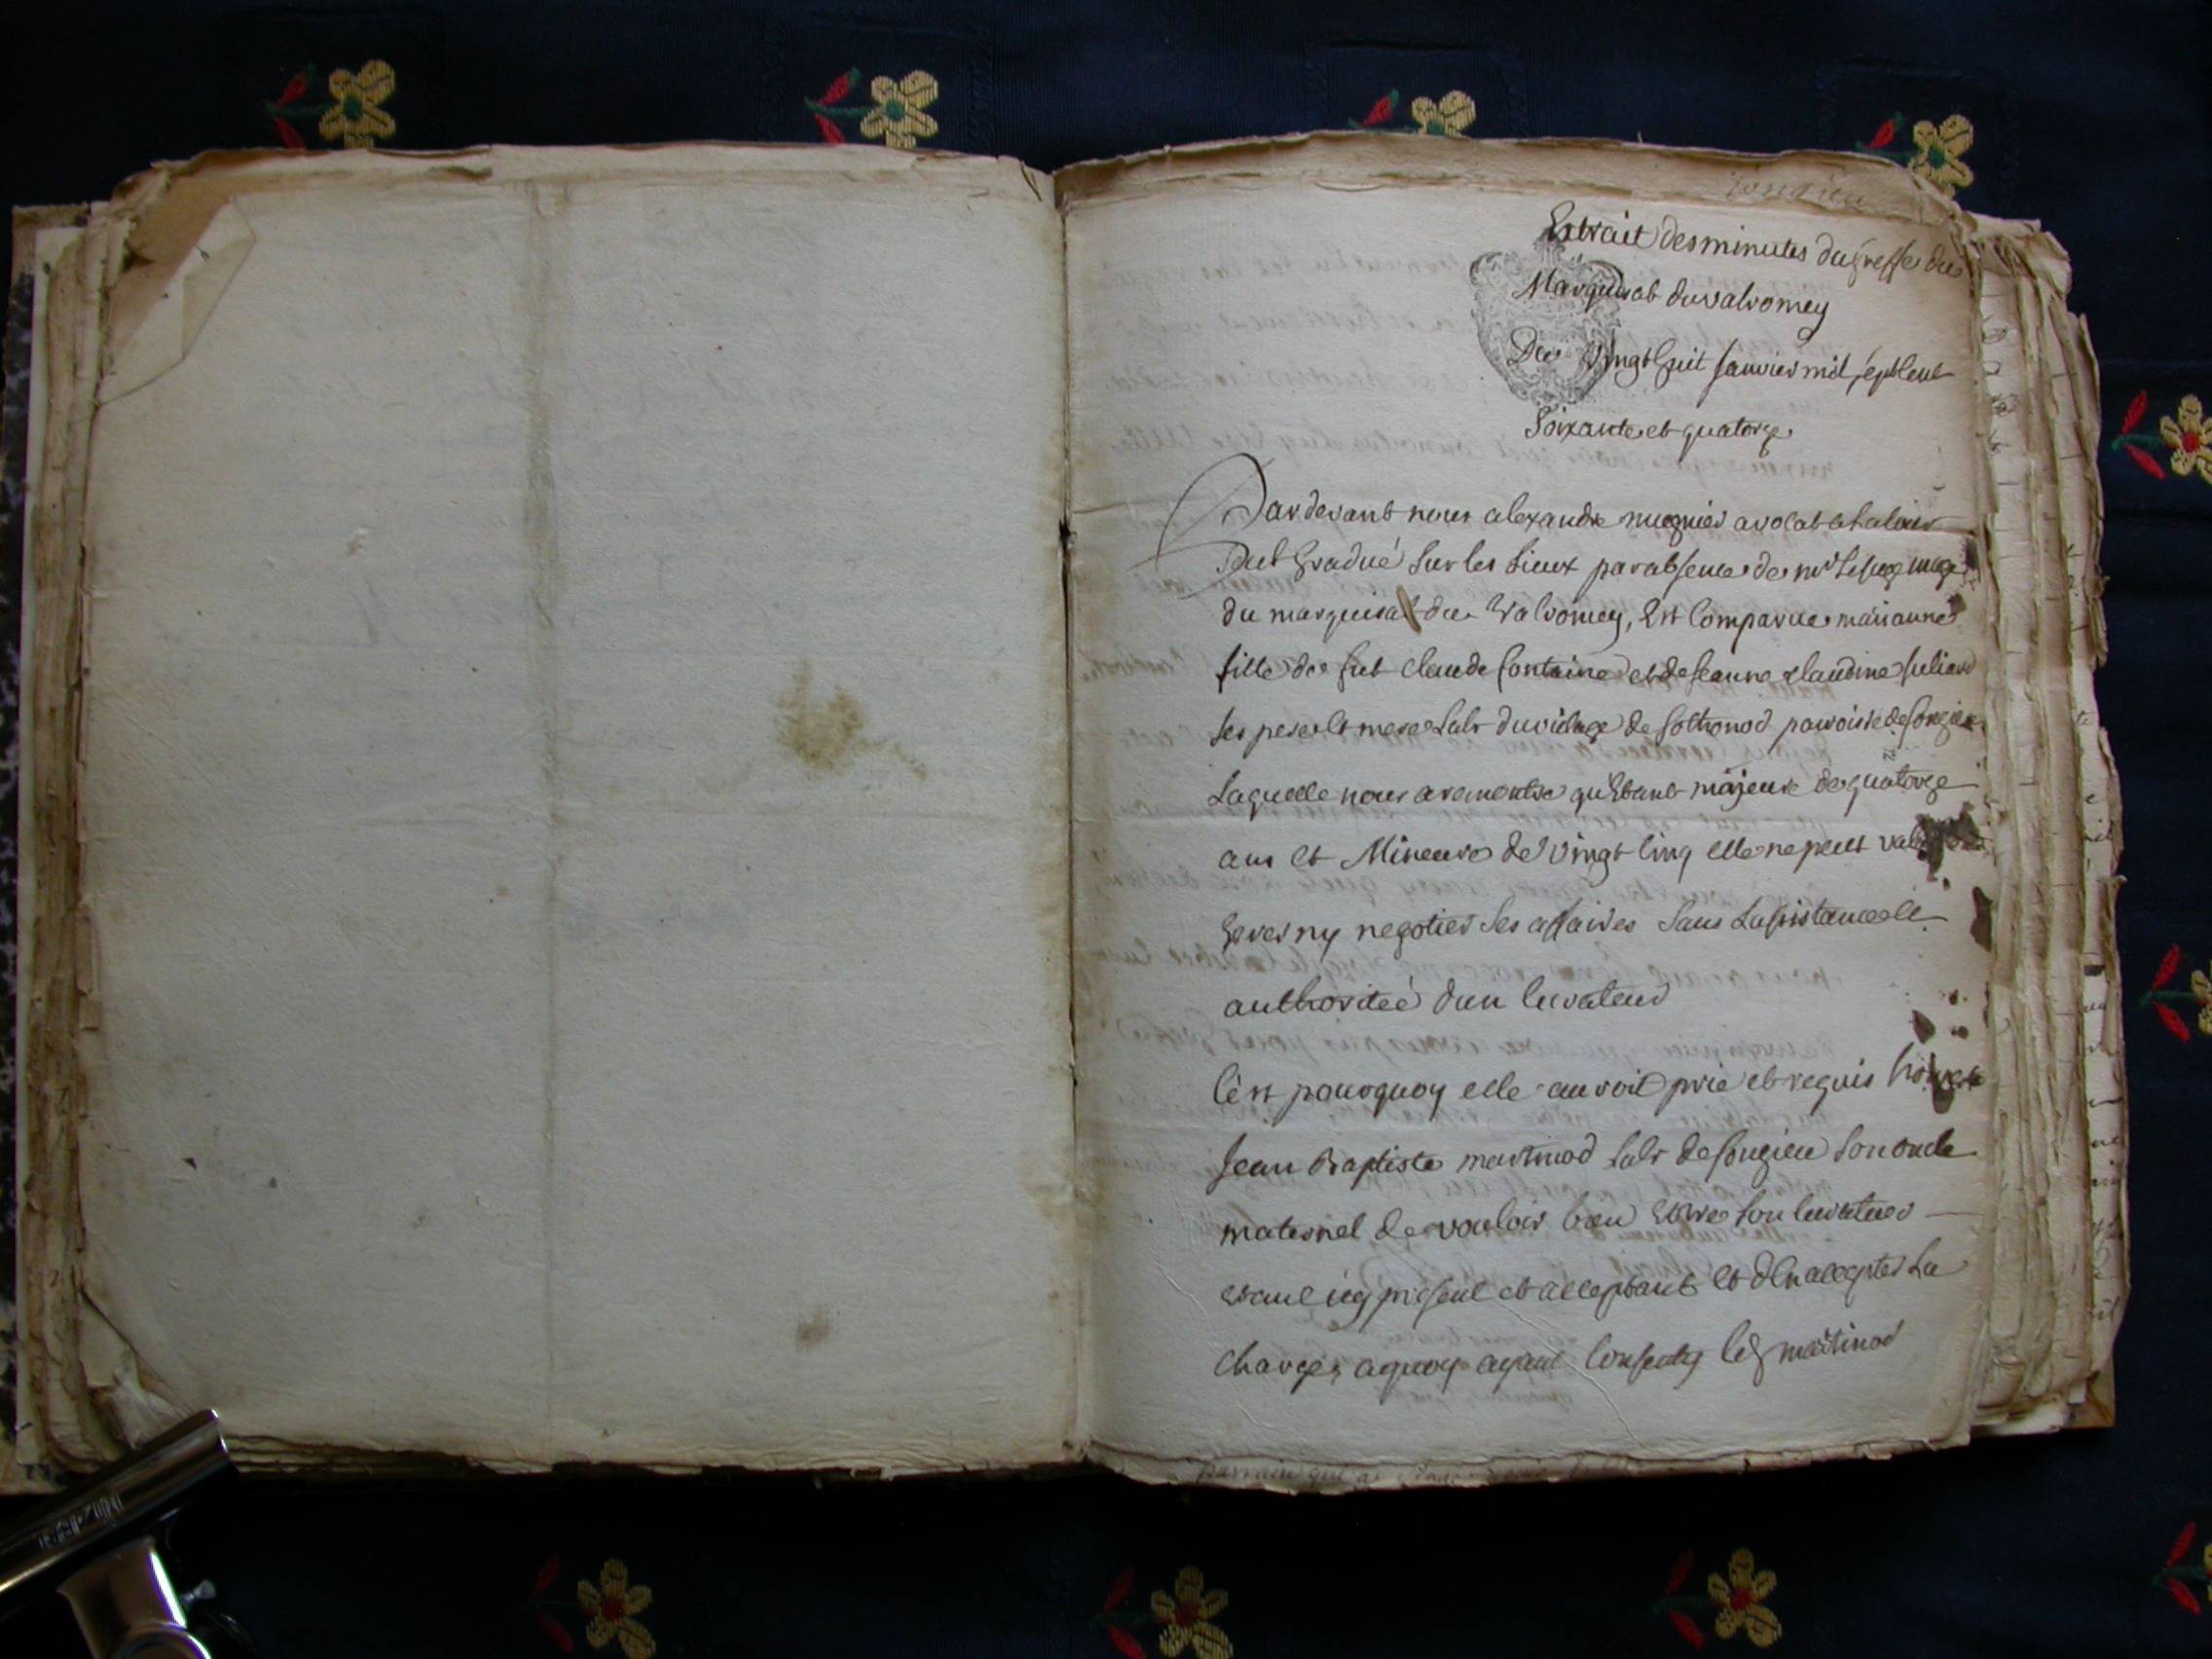 Extrait des minutes du greffe du
Marquisat du valromey
Du vingt huit Janvier mil sept cent
Soixante et quatorze
Pardevant nous alexandre mugnier avocat a la cour
seul Gradué sur les lieux par absence de mr le juge mage
du marquisat du Valromey, Est Comparue marianne
fille de fut Claude fontaine et de jeanne Claudine Juliard
ses pere et mere habt du vilage de sothonod paroisse de songieu
Laquelle nous a remontré qu'Etant majeure de quatorze
ans et Mineure de vingt cinq elle ne peut
gerer ny negotier ses affaires sans Lasistance et
authoritéé d'un Curateur
C'est pourquoy elle auroit prié et requis honneste
Jean Baptiste martinod habt de songieu son oncle
maternel de vouloir bien Estre son Curateur
étant icy présent et acceptant et d'En accepter La
charge, a quoy ayant Consenty led martinod